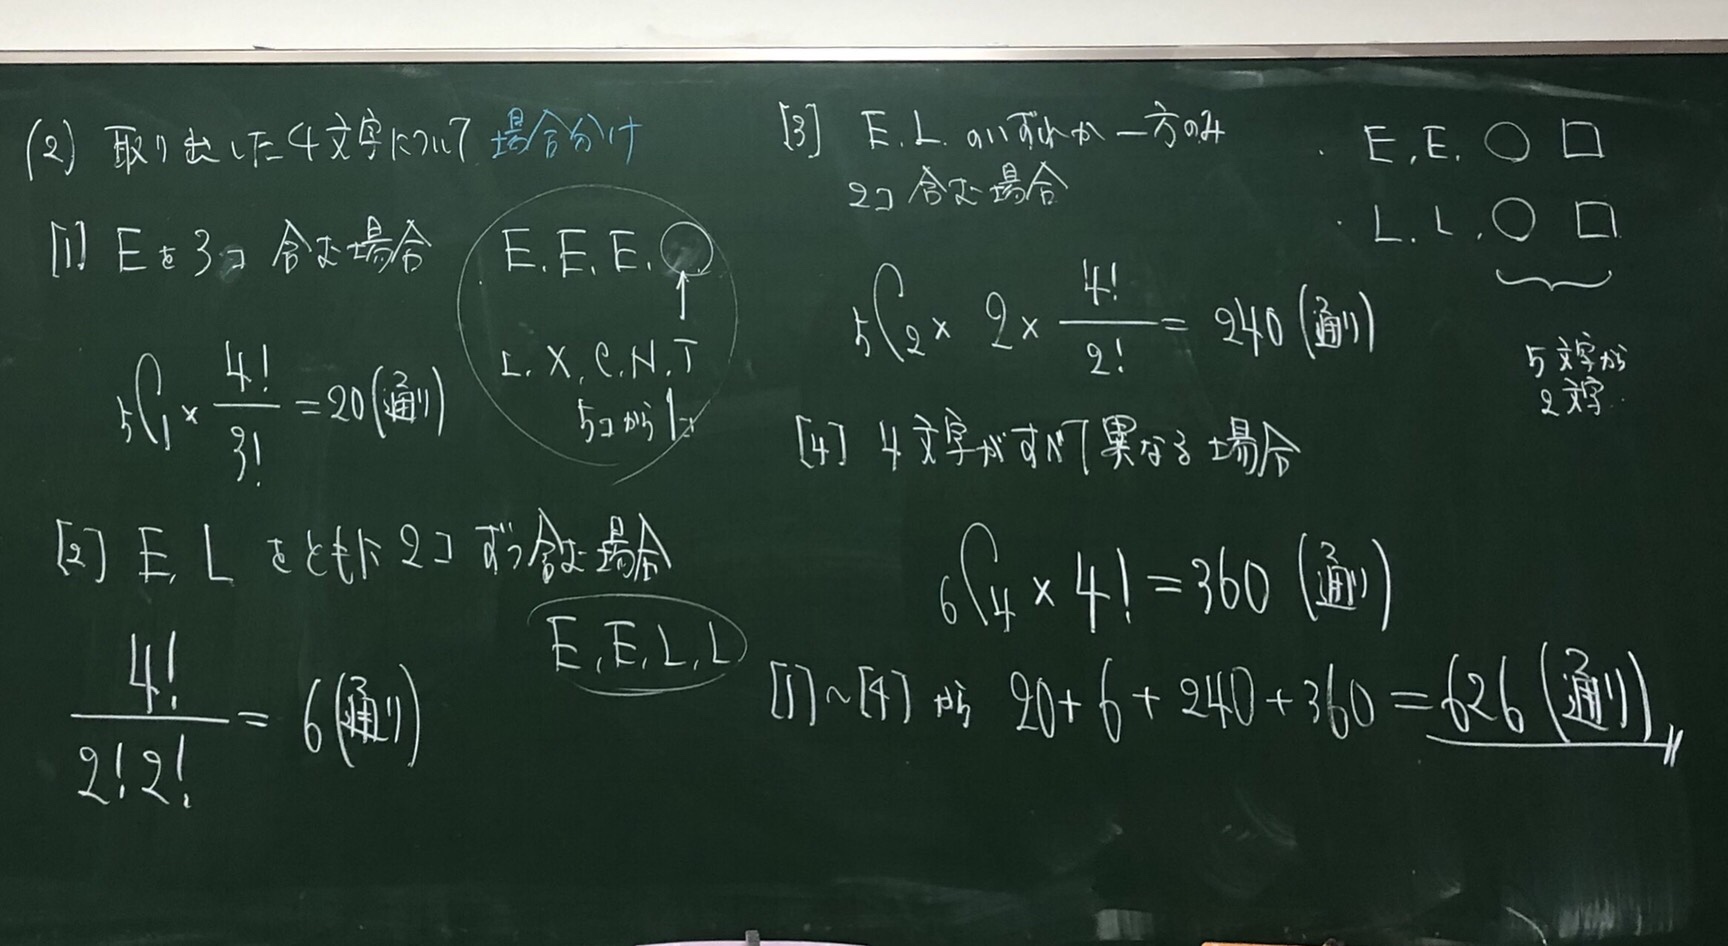 (2) 取り出した4文字について 場合分け
[1] Eを3コ 含む場合
E. E. E. ○
↑
L. X. C. N. T
5コから1コ
₅C₁ × 4!/3! = 20 (通り)
[2] E, L をともに 2コ ずつ含む場合
E, E, L, L
4!/2!2! = 6 (通り)
[3] E. L. のいずれか 一方のみ
2コ 含む場合
・ E, E. ○ □
・ L. L. ○ □
5文字から
2文字
₅C₂ × 2 × 4!/2! = 240 (通り)
[4] 4文字がすべて異なる場合
₆C₄ × 4! = 360 (通り)
[1]~[4] から 20+6+240+360 = 626 (通り)